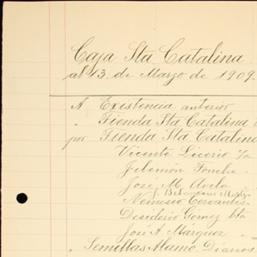 Caja Sta Catalina
al 13 de Marzo de 1909.
A Existencia anterior
" Tienda Sta Catalina
por Tienda Sta Catalina
Vicente Licerio
Filemon
Jose M.
Nemesio Cervantes
Desiderio Gomez
Jose A. Marquez
" Semillas Alamo